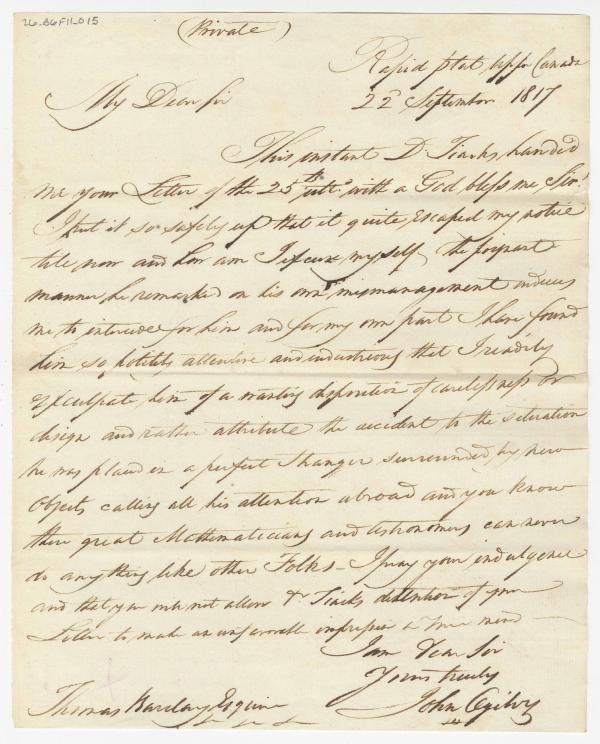 26.B6F11.015
(Private)
Rapid plat, upper Canada
22d September 1817
My Dear Sir
This instant Dr. Tiarks, handed
me your Letter of the 25th ulto. with a God bless me, Sir!
I put it so safely up that it quite, escaped my notice
till now and how am I Excuse, myself, the
manner he remarked on his own mismanagement induces
me to intercede for him and for my own part I have found
him so politely attentive and industrious that I readily
exculpate, him of a disposition of carelessness or
design and rather attribute the accident to the situation
he was placed in a perfect Stranger surrounded by new
Objects calling all his attention abroad and you know
these great Mathematicians and astronomers can never
do anything like other Folks - I pray your indulgence
and that you will not allow Dr. Tiarks detention of your
Letter to make an unfavorable impression on your mind
I am Dear Sir
Yours truly
John Ogilvy
Thomas Barclay Esquire